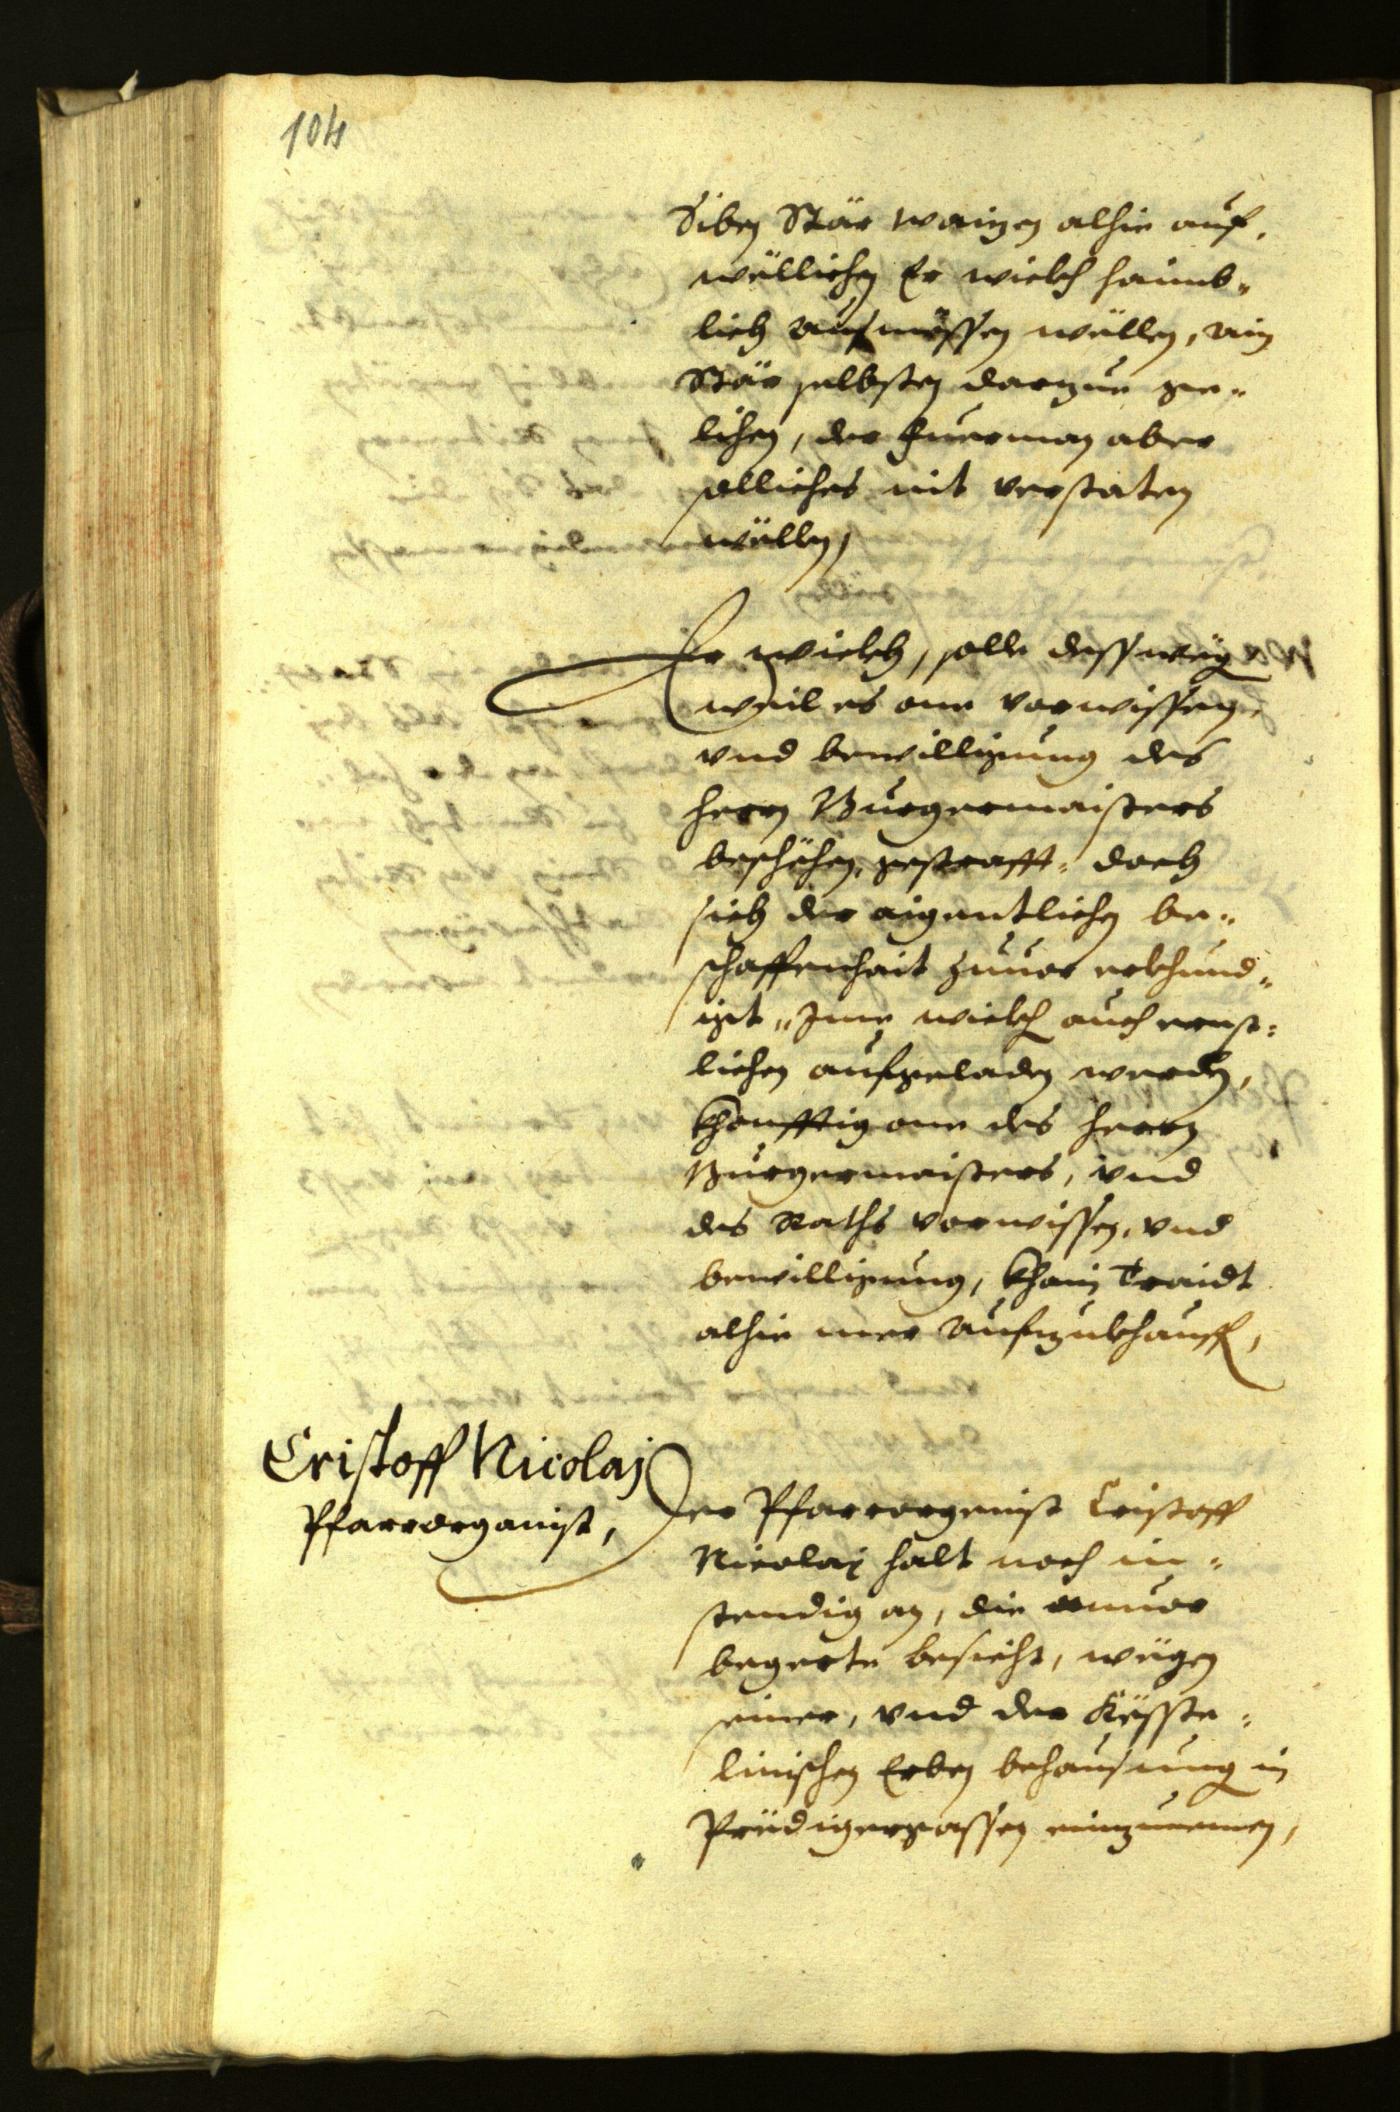 104
Siben Stär waizen alhie auf,
wellichen Er wielch haimb=
lich aufmössen wöllen, ain
Stär selbsten darzue ge=
lihen, der fuerman aber
solliches nit verstaten
wöllen,
Er wielch, solle desswög
weil es one vorwissen,
vnd bewilligung des
herrn Burgermaisters
beschöhen, gestrafft, doch
sich der aigentlichen be=
schaffenhait zuuor erkhund=
igt, Ime wielch auch ernst=
lichen aufgeladen werden,
khonfftig one des herrn
Burgermaisters, vnd
des Raths vorwissen, vnd
bewilligung, khain Traidt
alhie mer aufzukhauffen,
Cristoff Nicolaj
Pfarrorganist,
Der Pfarrorgenist Cristoff
Nicolaj halt noch in=
stendig an, die zuuor
begerte besicht, wögen
seiner, vnd der Kösste=
linischen Erben behausung in
Prödigergassen einzunemen,